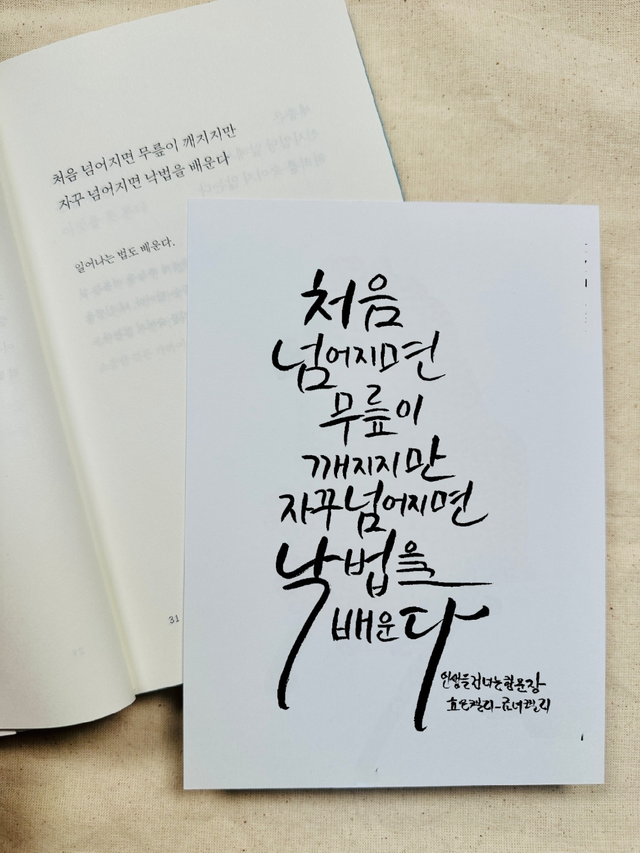 처음 넘어지면 무릎이 깨지지만
자꾸 넘어지면 낙법을 배운다
일어나는 법도 배운다.
31
처음
넘어지면
무릎이
깨지지만
자꾸넘어지면
낙법을
배운다
인생을건너는한문장